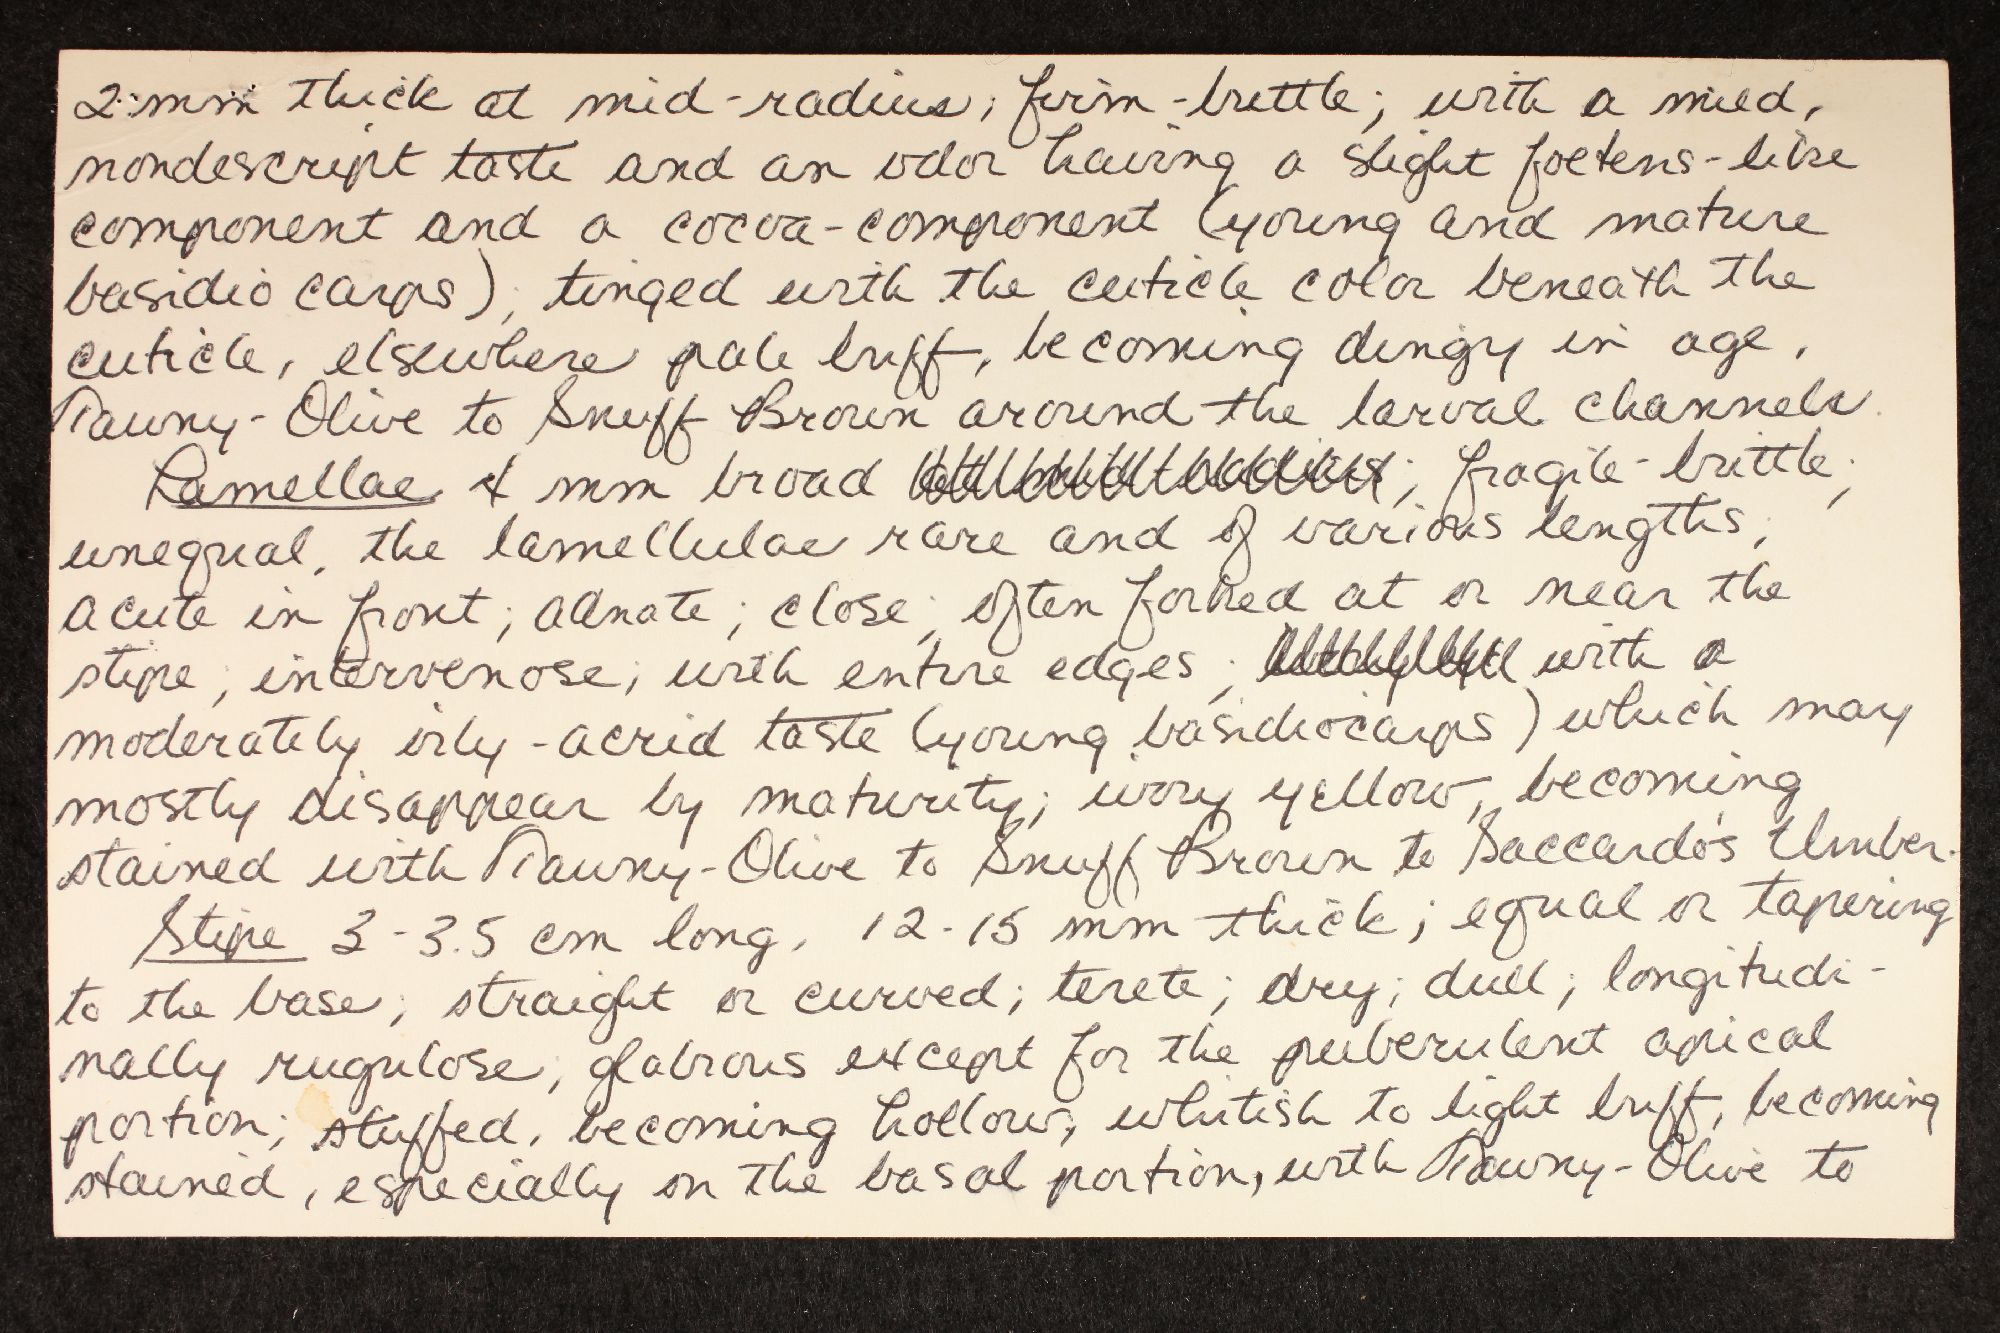 2 mm thick at mid-radius; firm-brittle; with a mild,
nondescript taste and an odor having a slight foetens-like
component and a cocoa-component (young and mature
basidiocarps); tinged with the cuticle color beneath the
cuticle, elsewhere pale buff, becoming dingy in age,
Tawny-Olive to Snuff Brown around the larval channels.
Lamellae 4 mm broad ; fragile-brittle;
unequal, the lamellulae rare and of various lengths;
acute in front; adnate; close; often forked at or near the
stipe; intervenose; with entire edges; with a
moderately oily-acrid taste (young basidiocarps) which may
mostly disappear by maturity; ivory yellow, becoming
stained with Tawny-Olive to Snuff Brown to Saccardo's Umber.
Stipe 3-3.5 cm long, 12-15 mm thick; equal or tapering
to the base; straight or curved; terete; dry; dull; longitudi-
nally rugulose; glabrous except for the puberulent apical
portion; stuffed, becoming hollow; whitish to light buff, becoming
stained, especially on the basal portion, with Tawny-Olive to